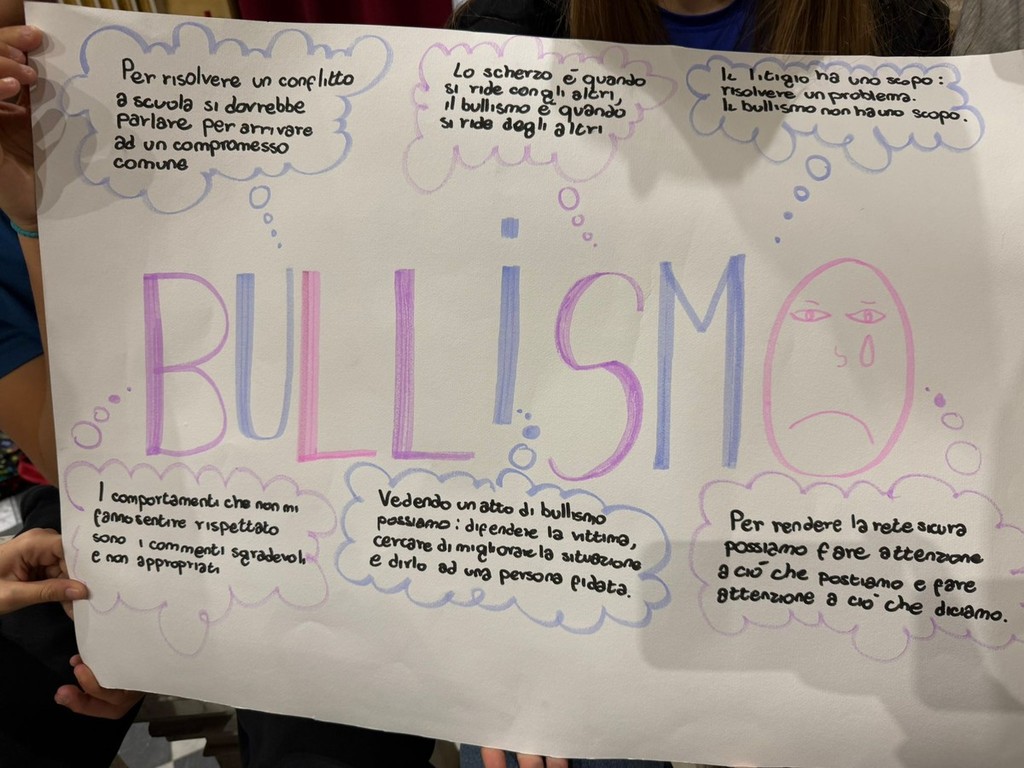 Per risolvere un conflitto
a scuola si dovrebbe
parlare per arrivare
ad un compromesso
comune
Lo scherzo è quando
si ride con gli altri,
il bullismo è quando
si ride degli altri
Il litigio ha uno scopo:
risolvere un problema.
Il bullismo non ha uno scopo.
BULLiSMO
I comportamenti che non mi
fanno sentire rispettato
sono i commenti sgradevoli
e non appropriati
Vedendo un atto di bullismo
possiamo: difendere la vittima,
cercare di migliorare la situazione
e dirlo ad una persona fidata.
Per rendere la rete sicura
possiamo fare attenzione
a ciò che postiamo e fare
attenzione a ciò che diciamo.